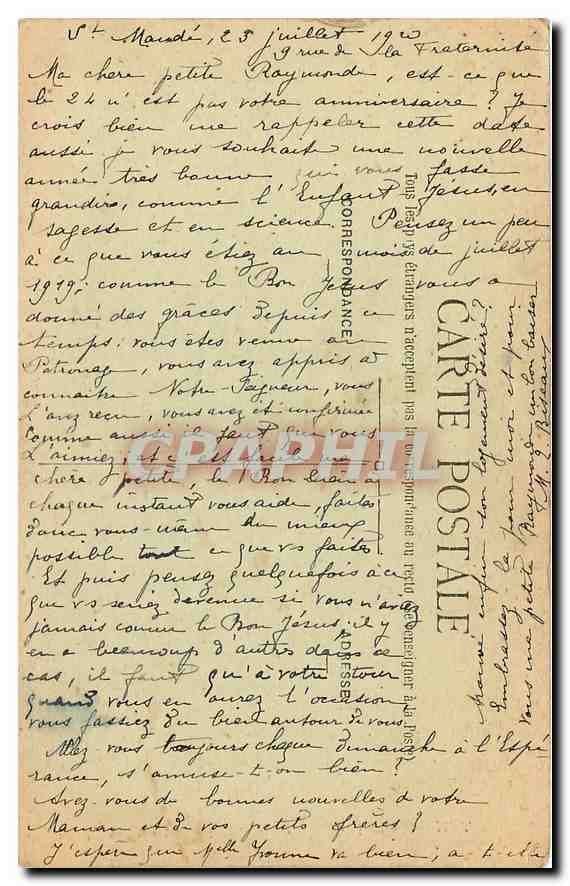 St Mandé, 23 juillet 1920
9 rue de la Fraternité
Ma chère petite Raymonde, est-ce que
le 24 n'est pas votre anniversaire ? Je
crois bien me rappeler cette date
aussi je vous souhaite une nouvelle
année très bonne qui vous fasse
grandir, comme l'Enfant Jésus, en
sagesse et en science. Pensez un peu
à ce que vous étiez au mois de juillet
1919; comme le Bon Jésus vous a
donné des grâces depuis ce
temps: vous êtes venue au
Patronage, vous avez appris à
connaître Notre-Seigneur, vous
l'avez reçu, vous avez été confirmée
Comme aussi il faut que vous
L'aimiez, et
chère petite, le Bon Dieu à
chaque instant vous aide, faites
donc vous-même du mieux
possible tout ce que vs faites.
Et puis pensez quelquefois à ce
que vs seriez devenue si vous n'aviez
jamais connu le Bon Jésus: il y
en a beaucoup d'autres dans ce
cas, il faut qu'à votre tour
quand vous en aurez l'occasion
vous fassiez du bien autour de vous.
Allez-vous toujours chaque dimanche à l'Espé-
rance, s'amuse-t-on bien ?
Avez-vous de bonnes nouvelles de votre
Maman et de vos petits frères ?
J'espère que Melle Yvonne va bien; a-t-elle
trouvé enfin son logement désiré ?
Embrassez-la pour moi et pour
vous ma petite Raymonde un bon baiser
M. L. Biseau
CARTE POSTALE
Tous les pays étrangers n'acceptent pas la correspondance au recto (Se renseigner à la Poste)
CORRESPONDANCE
ADRESSE
CPARAMA